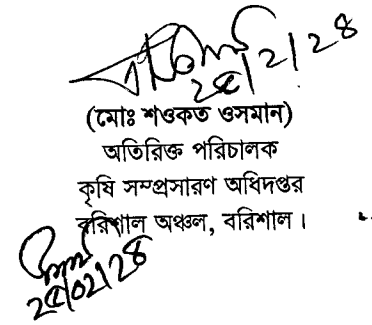 ২৫/২/২৪
(মোঃ শওকত ওসমান)
অতিরিক্ত পরিচালক
কৃষি সম্প্রসারণ অধিদপ্তর
বরিশাল অঞ্চল, বরিশাল।
২৫/০২/২৪